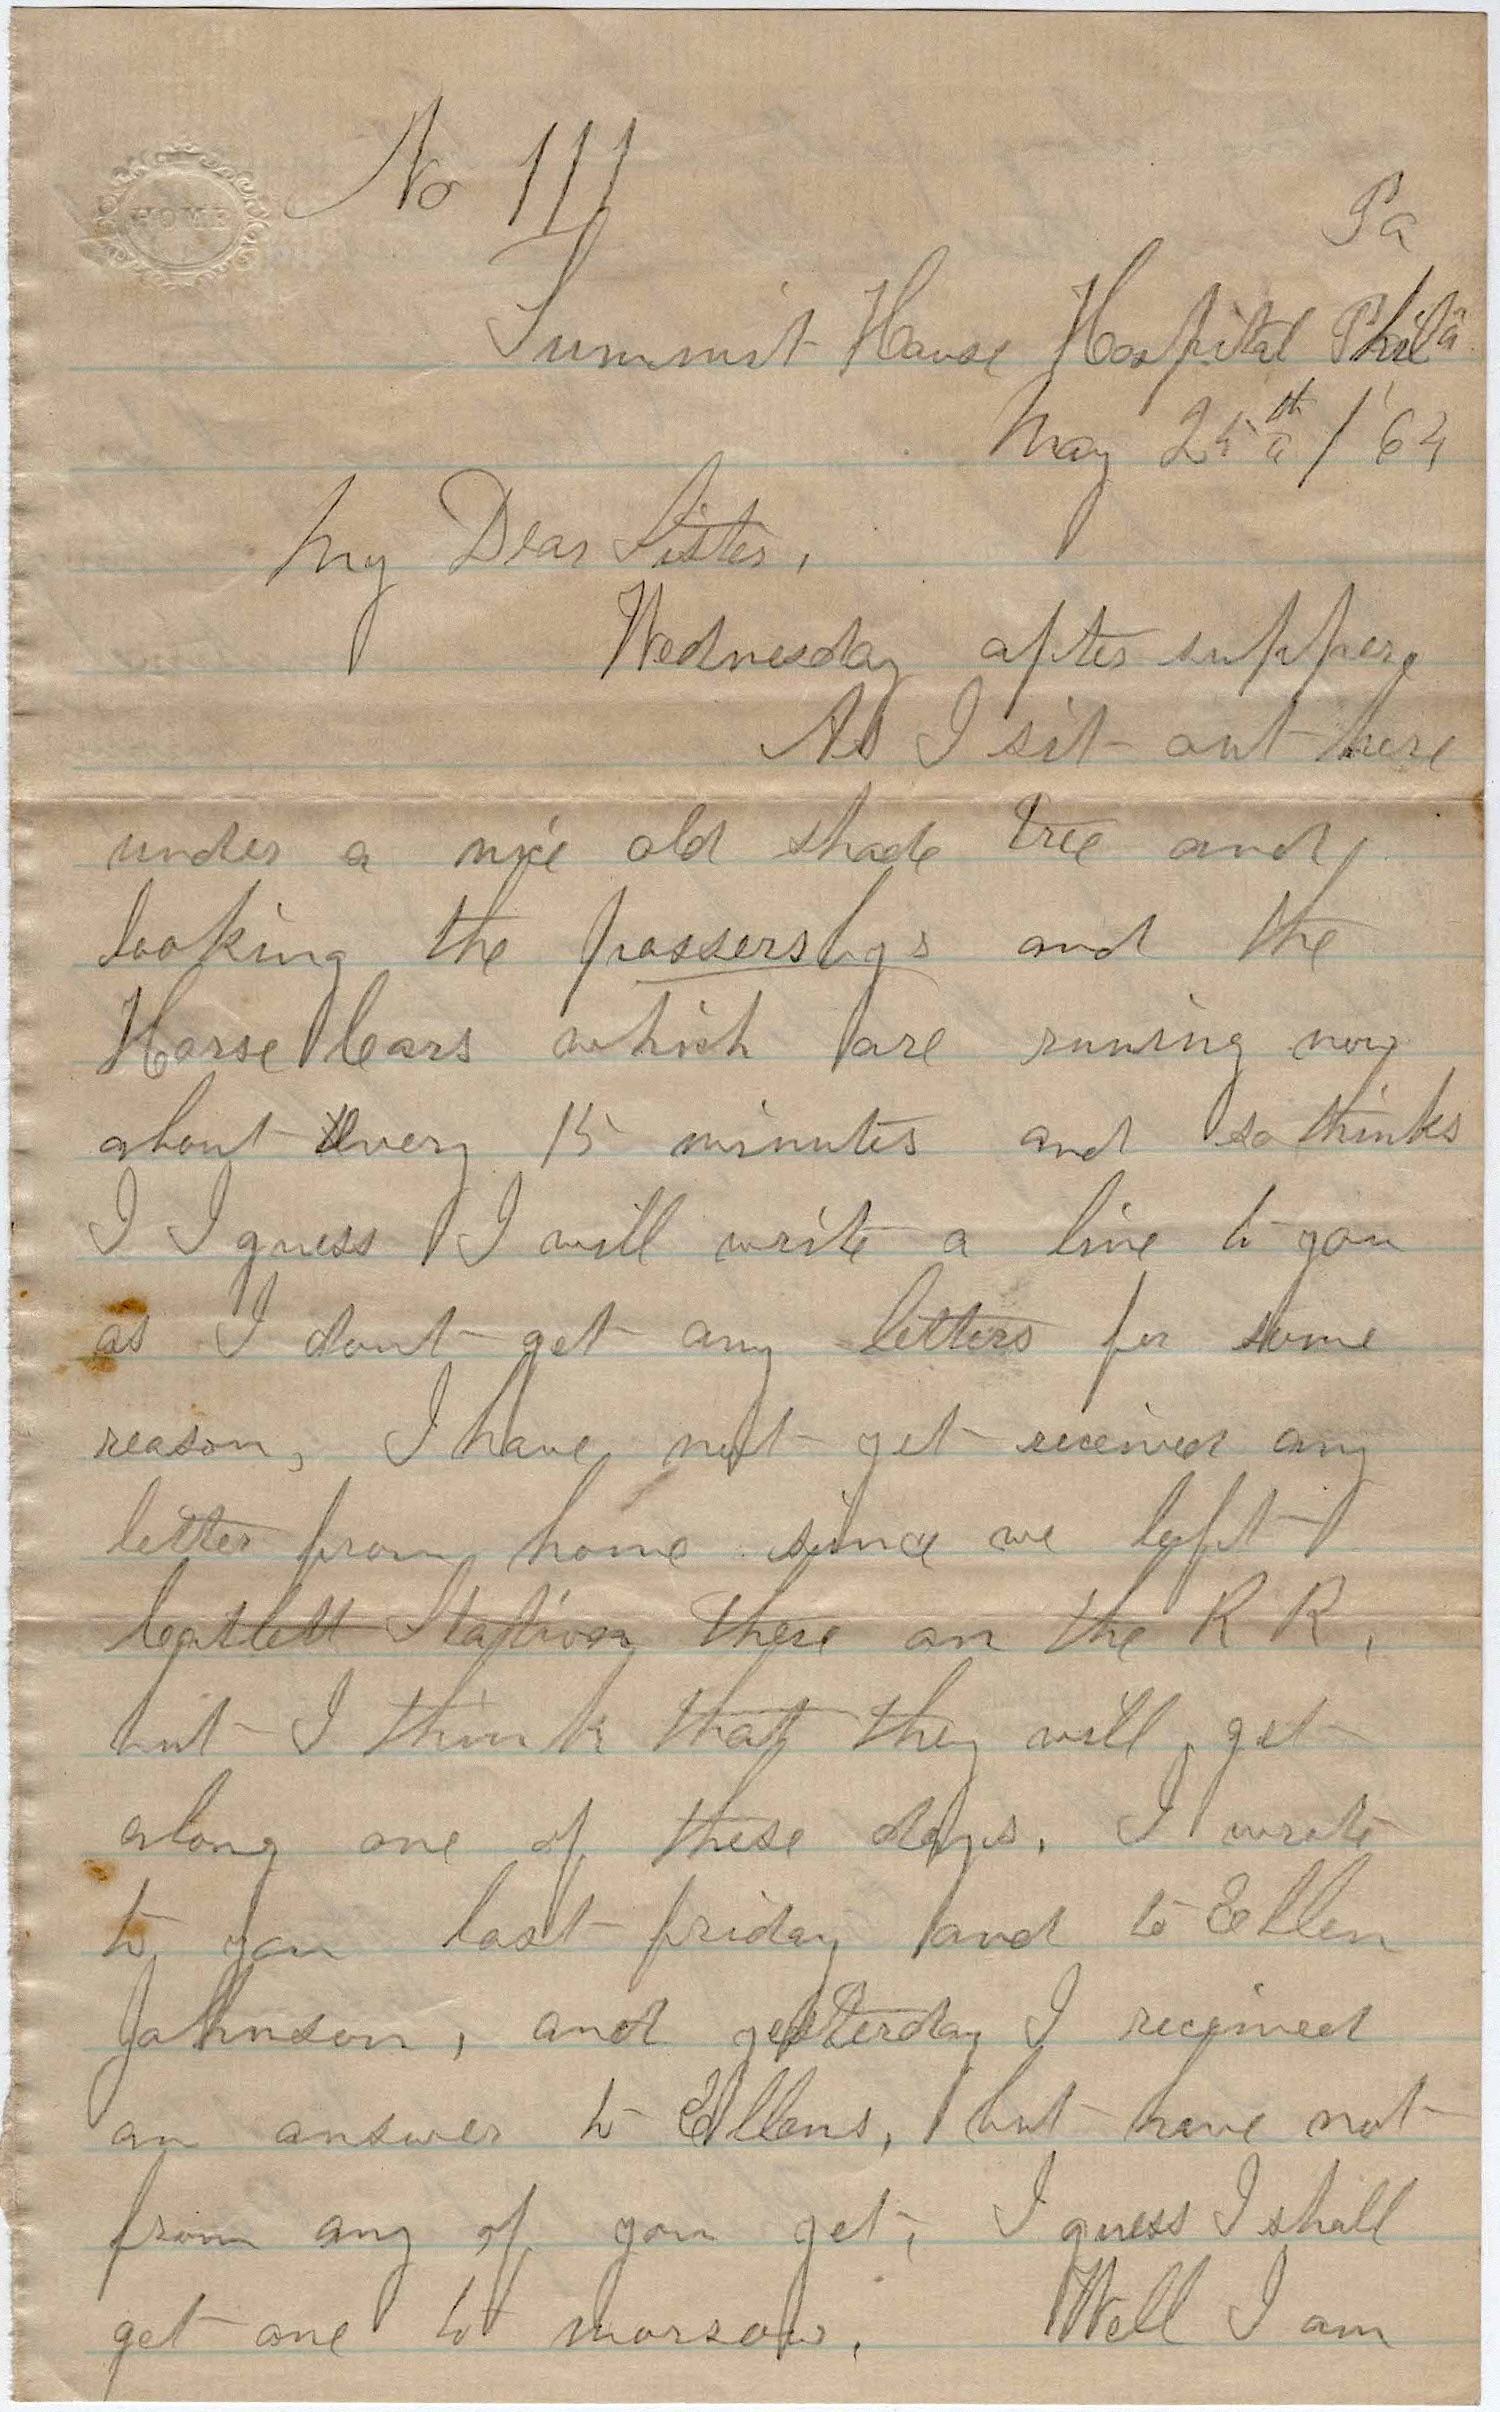 HOME
No 111
Pa
Summit House Hospital Phila
May 25th / '64
My Dear Sister,
Wednesday after supper,
As I sit out here
under a nice old shade tree and
looking the passersbys and the
Horse Cars which are runing now
about Every 15 minutes and so thinks
I I guess I will write a line to you
as I dont get any letters for some
reason, I have not yet received any
letter from home since we left
Catlett Station there on the R R,
but I think that they will get
along one of these days. I wrote
to you last friday and to Ellen
Johnson, and yesterday I received
an answer to Ellens, but have not
from any of you yet, I guess I shall
get one to morrow. Well I am